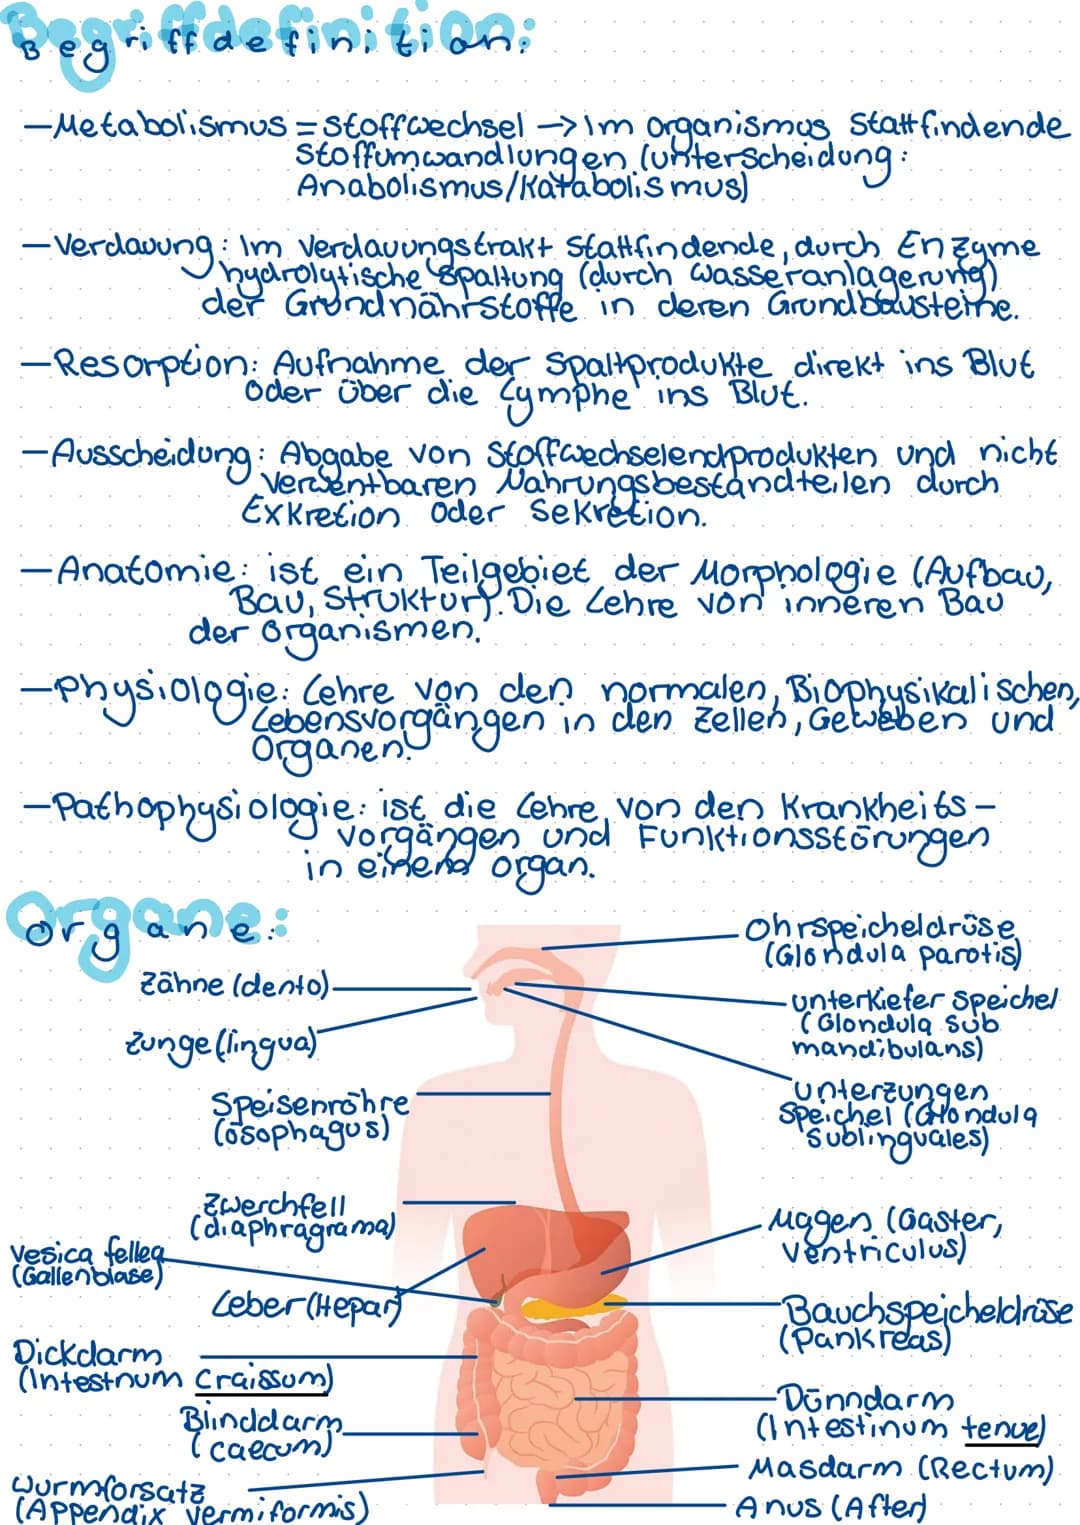 Begriffdefinition:
- Metabolismus = Stoffwechsel → Im organismus stattfindende
Stoffumwandlungen (unterscheidung:
Anabolismus/Katabolismus)
- Verdauung: Im Verdauungstrakt stattfindende, durch Enzyme
hydrolytische Spaltung (durch Wasseranlagerung)
der Grundnährstoffe in deren Grundbausteine.
- Resorption: Aufnahme der Spaltprodukte direkt ins Blut
oder über die Lymphe ins Blut.
- Ausscheidung: Abgabe von Stoffwechselendprodukten und nicht
Verwentbaren Nahrungsbestandteilen durch
Exkretion oder Sekretion.
- Anatomie: ist ein Teilgebiet der Morphologie (Aufbau,
Bau, Struktur). Die Lehre von inneren Bau
der Organismen.
- Physiologie: Lehre von den normalen, Biophysikalischen,
Lebensvorgängen in den Zellen, Geweben und
Organen.
- Pathophysiologie: ist die Lehre von den Krankheits-
vorgängen und Funktionsstörungen
in einem organ.
Organe:
Ohrspeicheldrüse
(Glondula parotis)
Zähne (dento)
unterkiefer Speichel
(Glondula sub
mandibulans)
Zunge (lingua)
unterzungen
Speichel (Glondula
Sublinguales)
Speisenröhre
(ösophagus)
Zwerchfell
(diaphragrama)
Magen (Gaster,
Ventriculus)
Vesica fellea
(Gallenblase)
Leber (Hepar)
Bauchspeicheldrüse
(Pankreas)
Dickdarm
(Intestnum Craissum)
Dünndarm
(Intestinum tenue)
Blinddarm
(caecum)
Masdarm (Rectum)
Wurmforsatz
(Appendix vermiformis)
Anus (After)